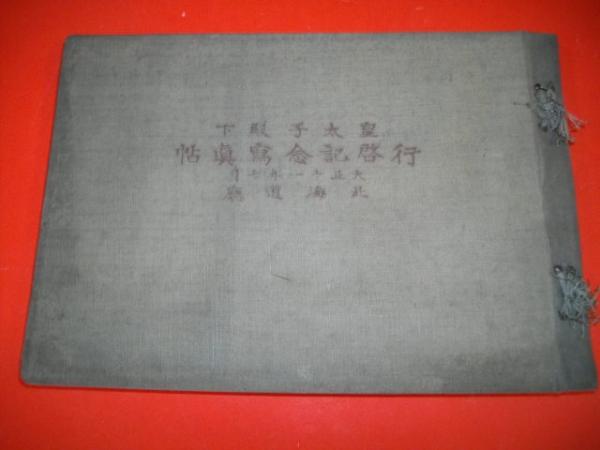 皇太子殿下
行啓記念寫眞帖
大正十一年七月
北海道廳